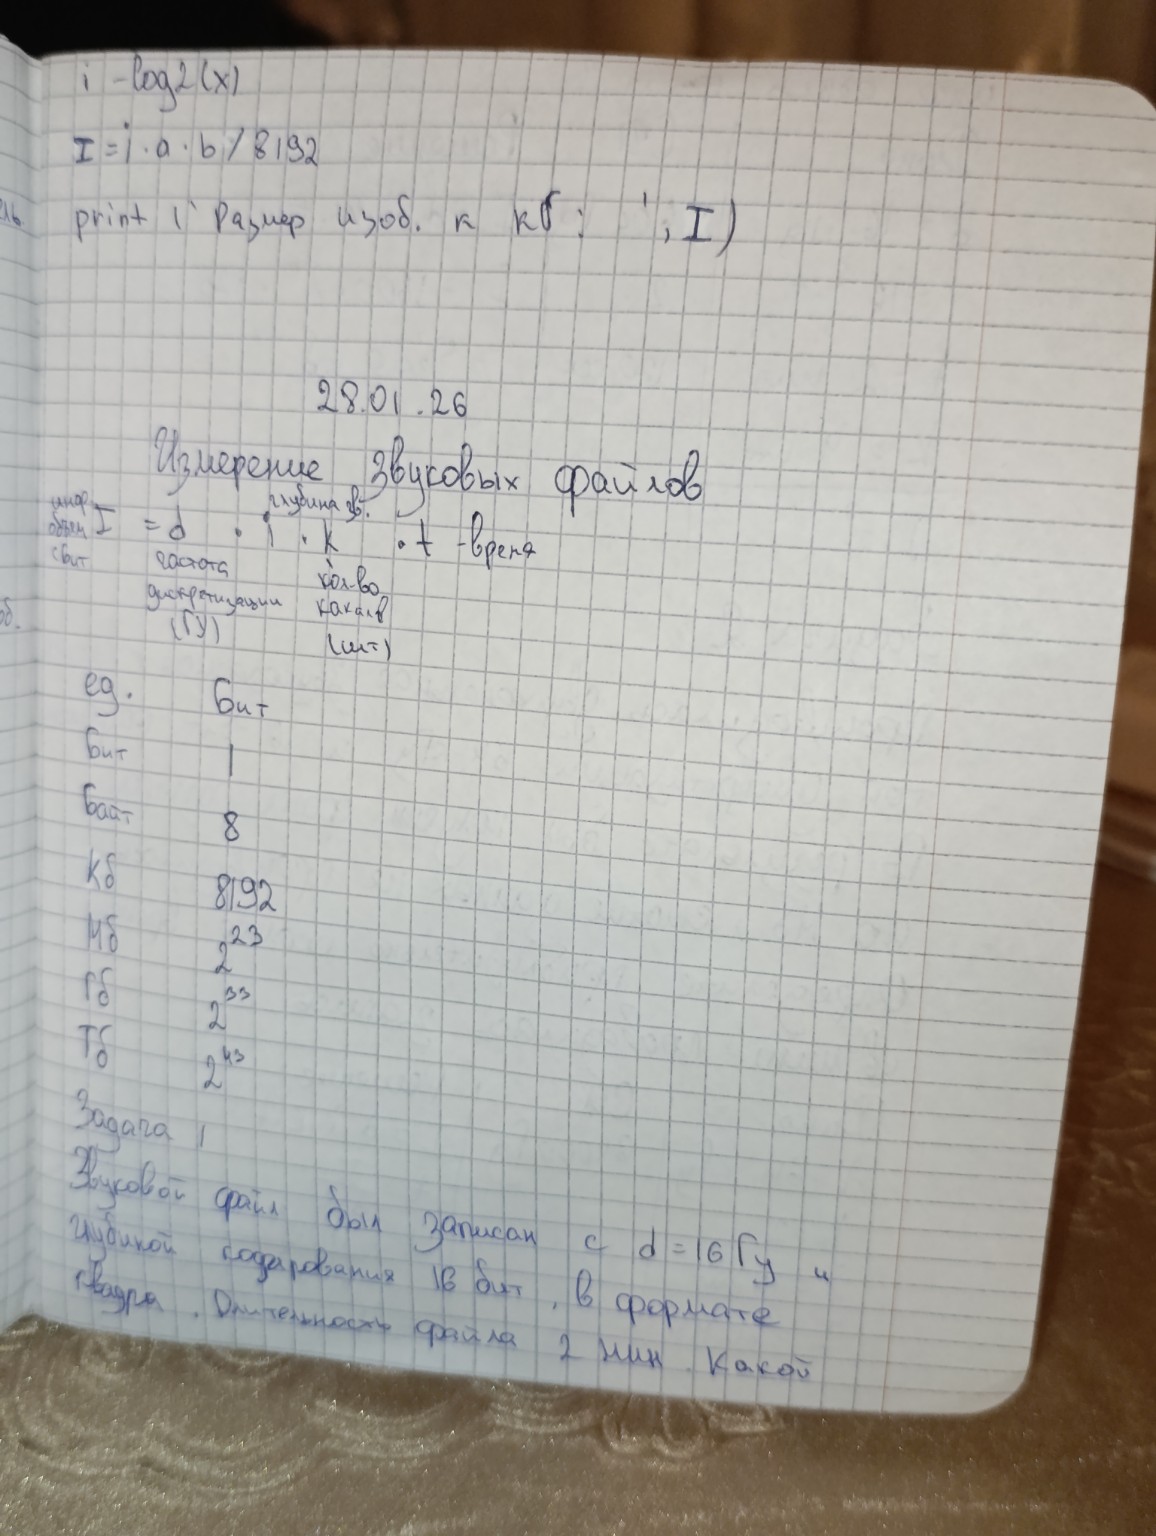 i = log2(x)
I = i · a · b / 8192
print (' Размер изоб. к кб: ', I)
28.01.26
Измерение звуковых файлов
инф. объем I = d · i · k · t - время
глубина зв.
с бит
частота дискретизации (Гц)
кол-во каналв (шт)
ед. бит
бит 1
байт 8
Кб 8192
Мб 2^23
Гб 2^33
Тб 2^43
Задача 1
Звуковой файл был записан с d = 16 Гц и
глубиной кодирования 16 бит, в формате
квадра. Длительность файла 2 мин. Какой